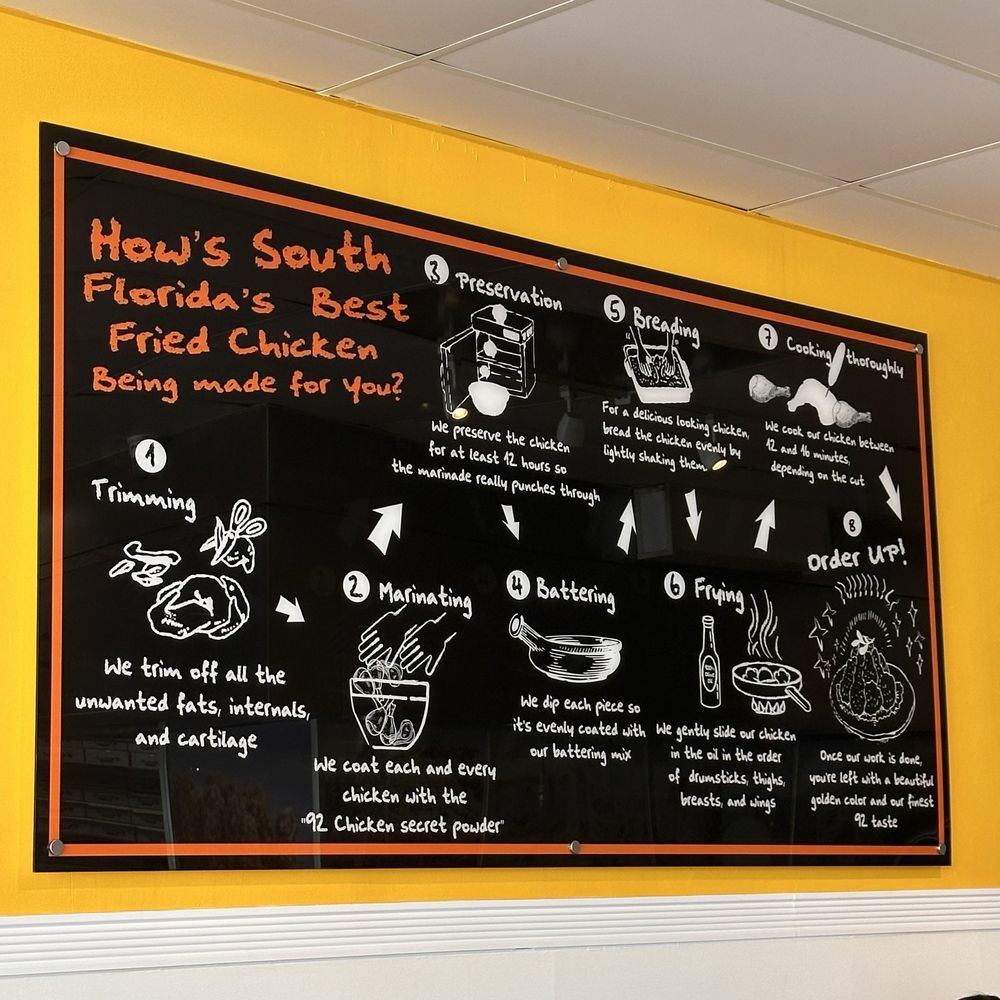 How's South
Florida's Best
Fried Chicken
Being made for you?
1
Trimming
We trim off all the
unwanted fats, internals,
and cartilage
2
Marinating
We coat each and every
chicken with the
"92 Chicken secret powder"
3
Preservation
We preserve the chicken
for at least 12 hours so
the marinade really punches through
4
Battering
We dip each piece so
it's evenly coated with
our battering mix
5
Breading
For a delicious looking chicken,
bread the chicken evenly by
lightly shaking them
6
Frying
We gently slide our chicken
in the oil in the order
of drumsticks, thighs,
breasts, and wings
7
Cooking thoroughly
We cook our chicken between
12 and 16 minutes,
depending on the cut
8
Order UP!
Once our work is done,
you're left with a beautiful
golden color and our finest
92 taste